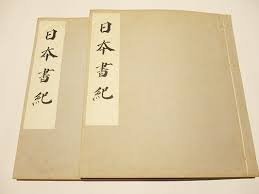 日本書紀
日本書紀